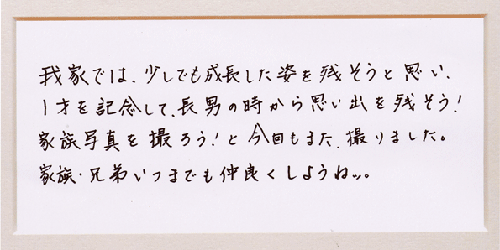 我家では、少しでも成長した姿を残そうと思い、
1才を記念して、長男の時から思い出を残そう!
家族写真を撮ろう!と今回もまた、撮りました。
家族・兄弟いつまでも仲良くしようねッ。